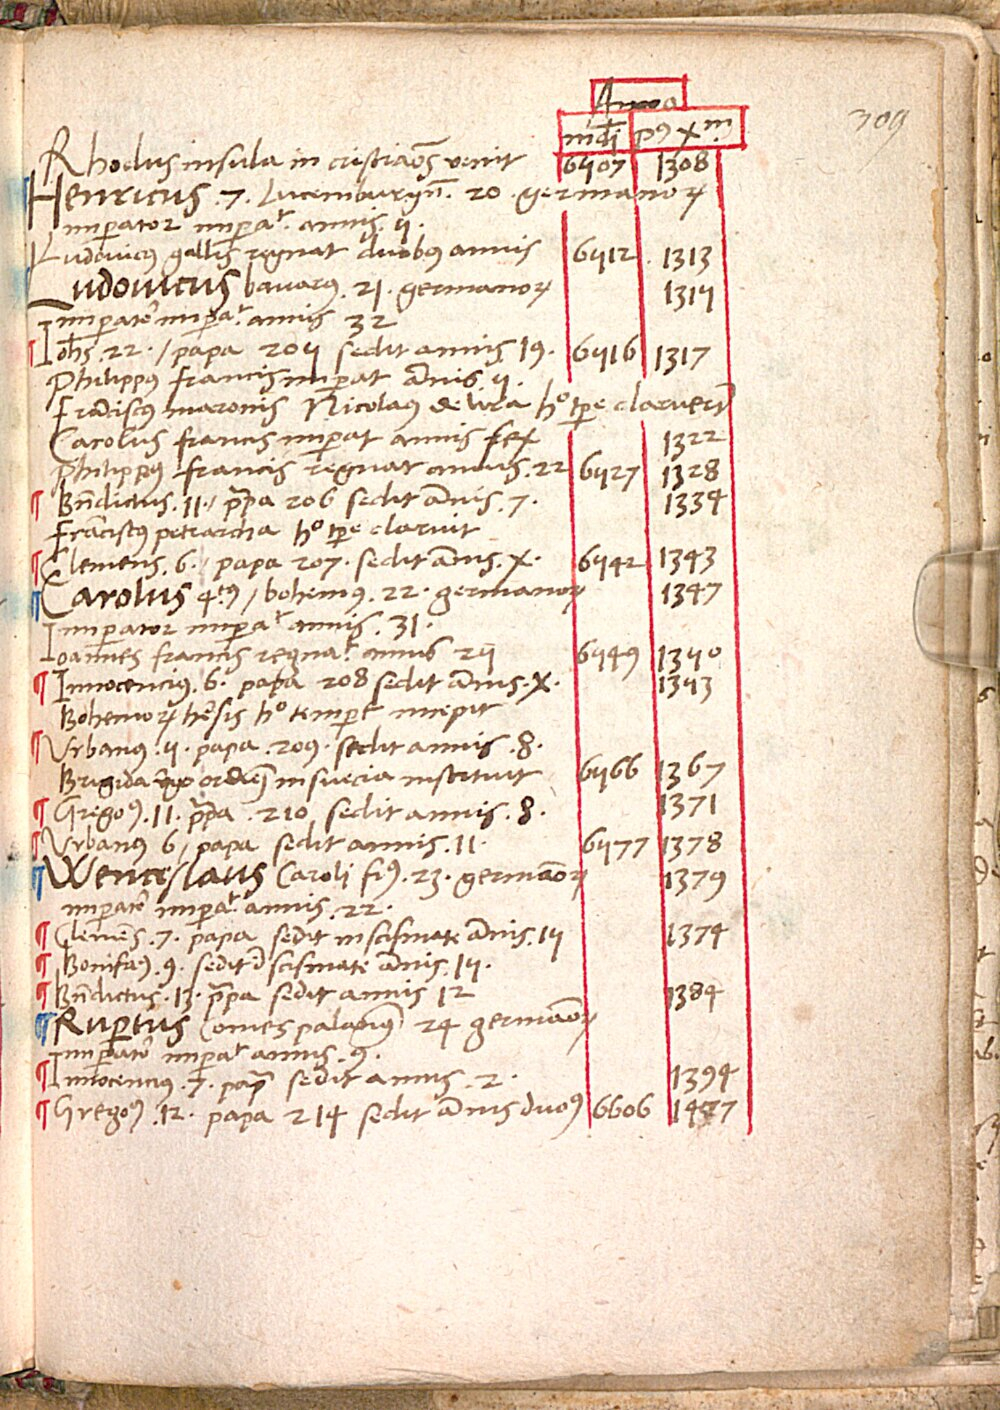 309
Anno a
mūdi pꝰ xm̄
Rhodus insula in cristiaōs venit 6507 1308
Henricus .7. Lucemburgn̄. 20 . germanoꝝ
imperator impaᵗ annis. 5.
Ludovicꝰ gallis regnat duobꝰ annis 6512 . 1313
Ludovicus bavarꝰ. 21. germanoꝝ 1315
imperatoʳ impaᵗ annis 32
Iohēs .22. / papa 205 sedit annis 19. 6516 1317
Philippꝰ francis imperat ānis. 5.
frāciscꝰ maronis Nicolaꝰ de lira hᵒ tp̄e claruerūt
Carolus francis imperat annis sex 1322
Philippꝰ francis regnat annis. 22 6527 1328
¶ Bn̄dictus. 11. / papa 206 sedit ānis. 7. 1334
frāciscꝰ petrarcha hᵒ tp̄e claruit
¶ Clemens. 6. / papa 207. sedit ānis. X. 6542 1343
¶ Carolus 4tꝰ / bohemꝰ. 22. germanoꝝ 1347
Imperator impaᵗ annis. 31.
Ioannes francis regnaᵗ annis 25 6549 1350
¶ Innocenciꝰ. 6. papa 208 sedit ānis. X. 1353
Bohemoꝝ hēsis hᵒ tempē incepit
¶ Vrbanꝰ .5. papa .209. sedit annis .8.
Brigida ordiē in suecia instituit 6566 1367
¶ Gregoꝰ. 11. papa .210, sedit annis. 8. 1371
¶ Vrbanꝰ 6, papa sedit annis. 11. 6577 1378
¶ Wenceslaus Caroli fiꝰ. 23. germāoꝝ 1379
imperatoʳ impaᵗ annis. 22.
¶ Clemēs .7. papa sedit in scismate ānis. 15 1374
¶ Bonifaꝰ. 9. sedit ī scismate ānis. 15.
¶ Bn̄dictus. 13. papa sedit annis 12 1384
¶ Ruptus Comes palatinꝰ 24 germāoꝝ
Imperatoʳ impaᵗ annis. 9.
¶ Innocenciꝰ .7. papa sedit annis. 2. 1394
¶ Gregoꝰ .12. papa 214 sedit ānis duoꝰ 6606